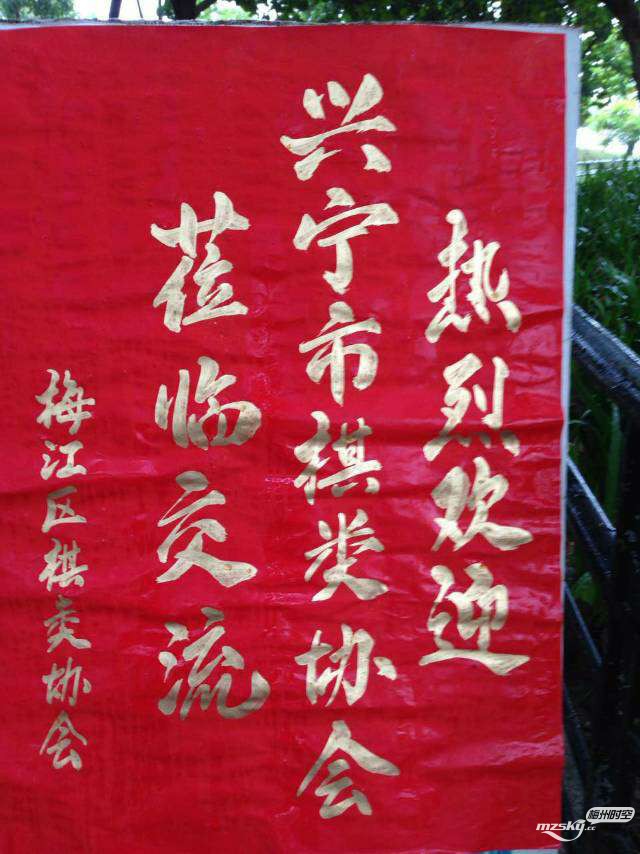 热烈欢迎
兴宁市棋类协会
莅临交流
梅江区棋类协会
梅州时空
mzsky.cc